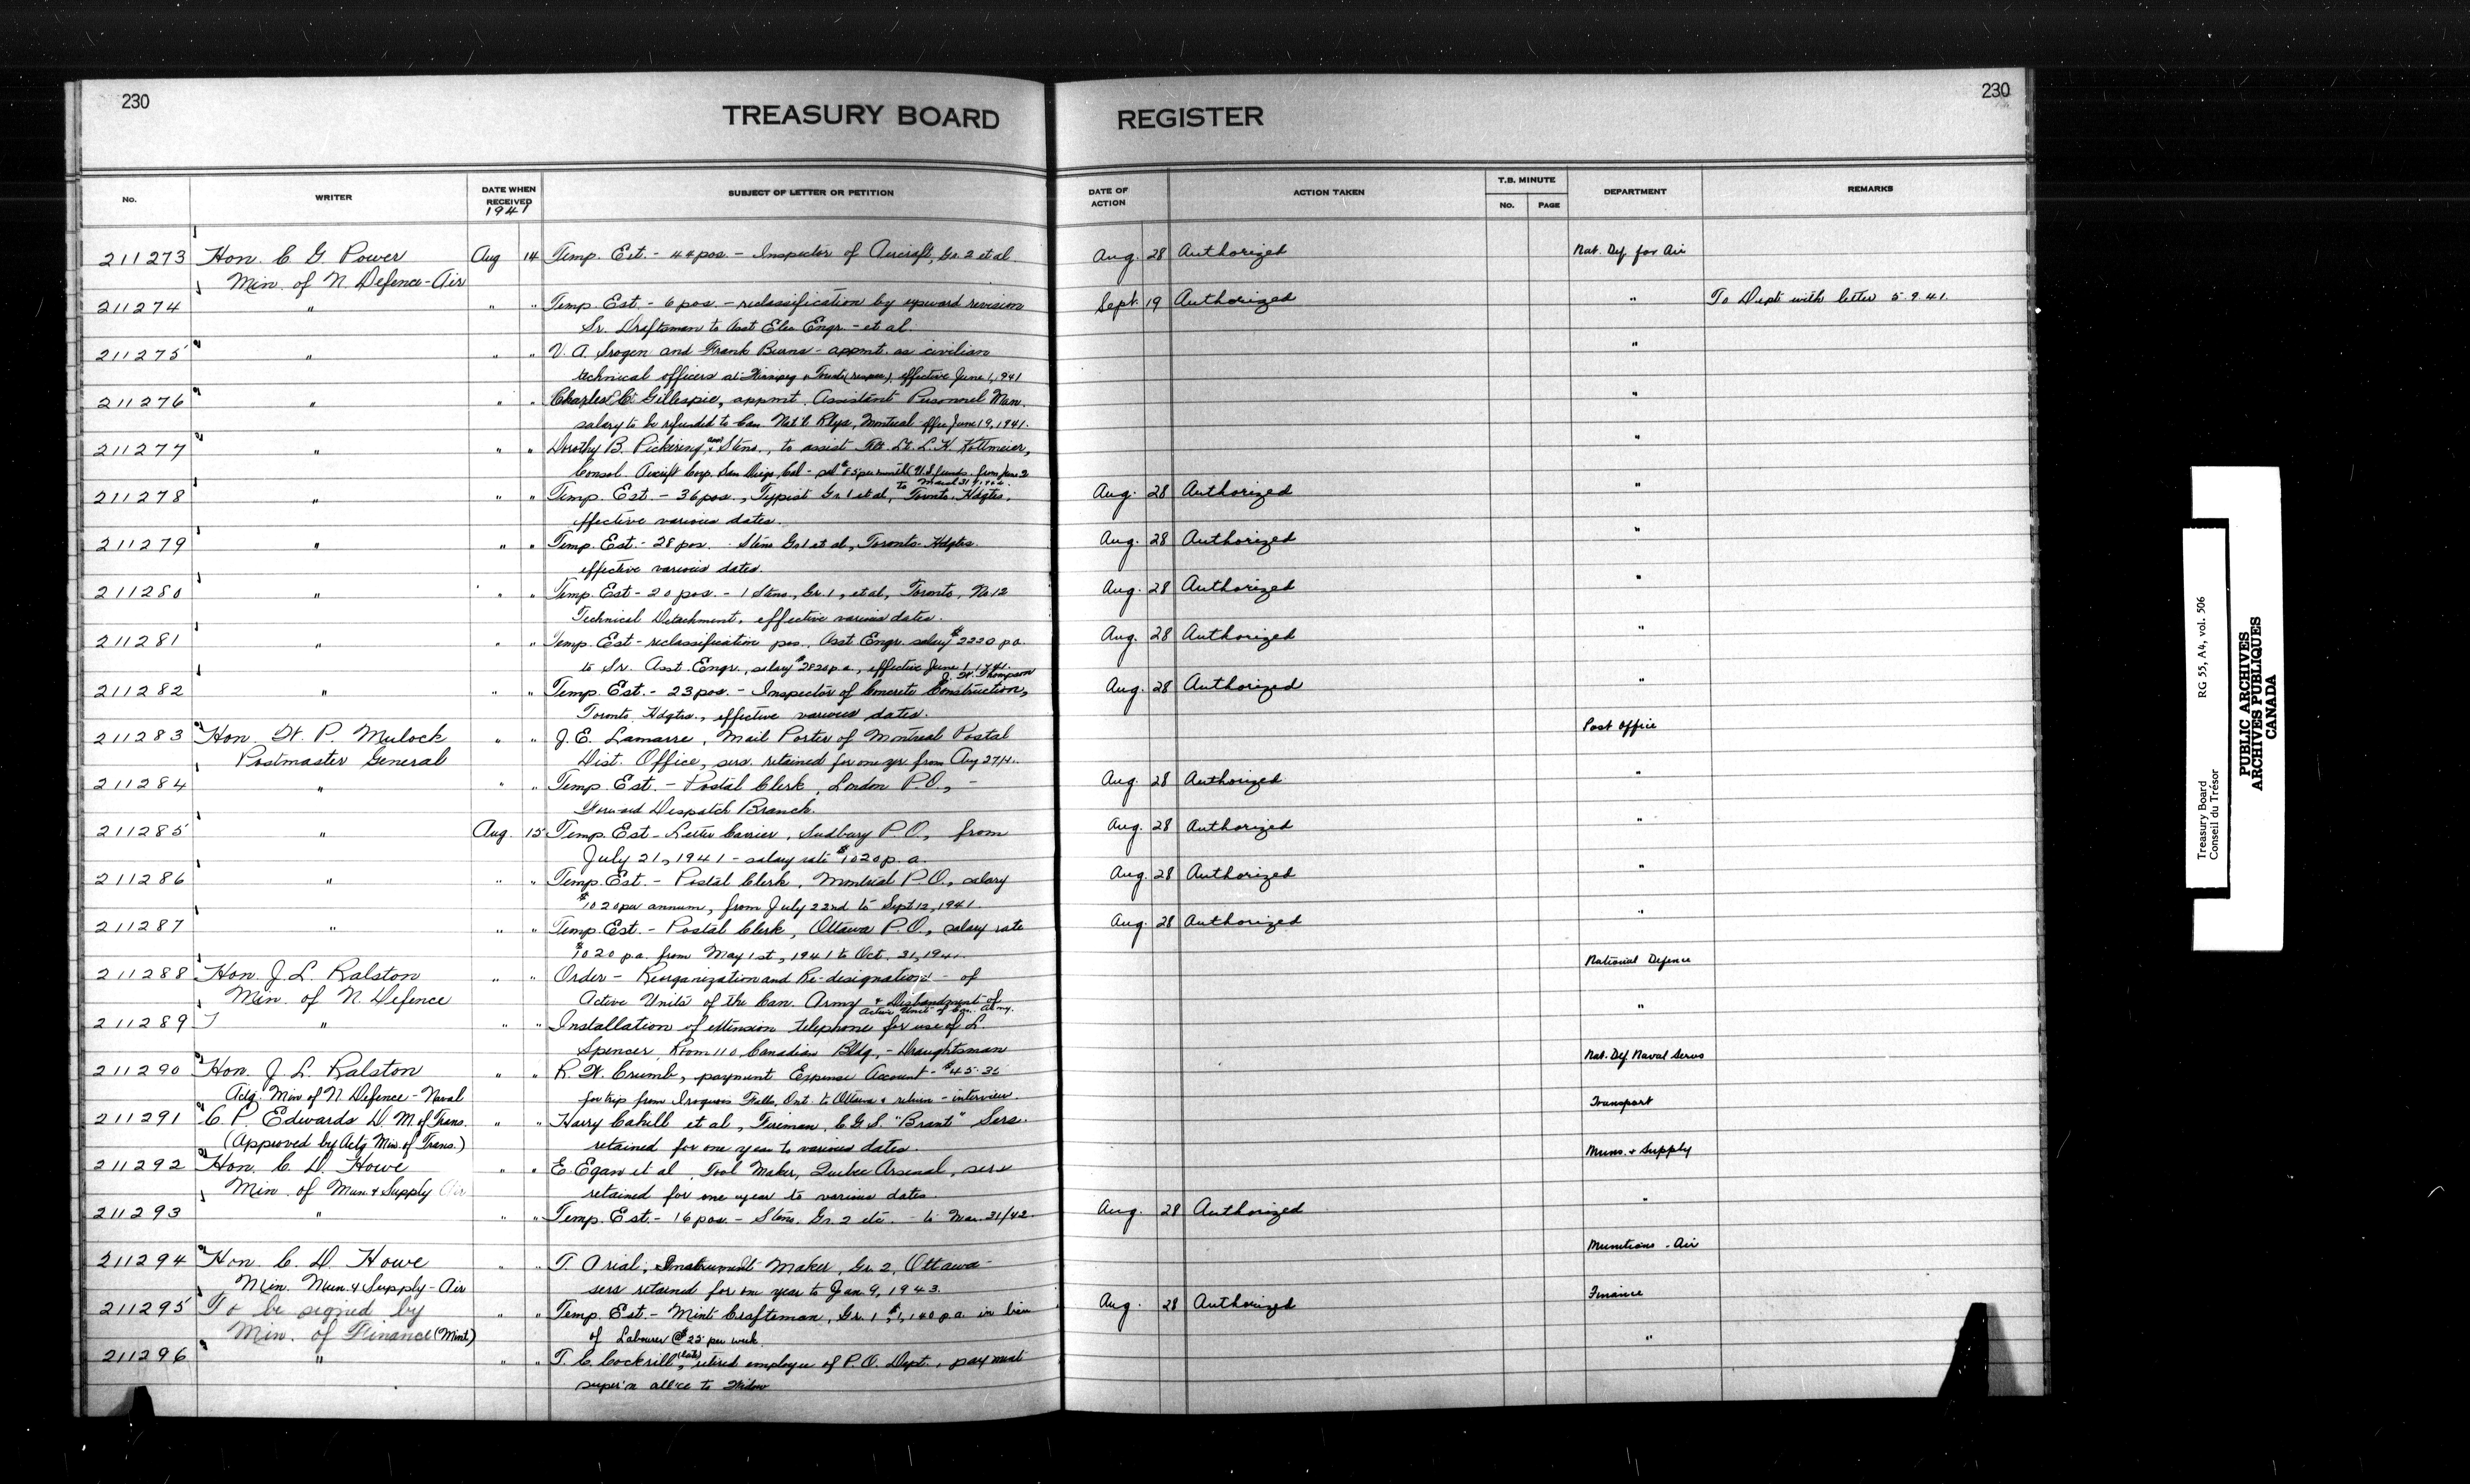 230
TREASURY BOARD REGISTER
230
No.
WRITER
DATE WHEN RECEIVED
1941
SUBJECT OF LETTER OR PETITION
DATE OF ACTION
ACTION TAKEN
T.B. MINUTE
No.
PAGE
DEPARTMENT
REMARKS
211273 Hon. C G. Power Aug 14 Temp. Est. - 44 pos. - Inspector of Aircraft, Gr. 2 et al Aug. 28 Authorized Nat. Def. for Air
Min. of N Defence - Air
211274 " " " Temp. Est. - 6 pos. - reclassification by upward revision Sept. 19 Authorized " To Dept with letter 5.9.41.
Sr. Draftsman to Asst Elec Engr. - et al.
211275 " " " V. A. Srogen and Frank Burns - appmt. as civilian "
technical officers at Winnipeg & Toronto (respec), effective June 1, 1941
211276 " " " Charles C. Gillespie, appmt. Assistant Personnel Man. "
salary to be refunded to Can Nat'l Rlys, Montreal effec June 19, 1941.
211277 " " " Dorothy B. Pickering, Steno., to assist Flt. Lt. L. H. Kottmeier, "
Consol. Aircraft Corp. San Diego, Cal - sal $85 per month (U.S. funds. from June 2
to March 31
211278 " " " Temp. Est. - 36 pos., Typist Gr 1 et al, Toronto. Hdqtrs. Aug. 28 Authorized "
effective various dates.
211279 " " " Temp. Est. - 28 pos. - Steno Gr 1 et al, Toronto Hdqtrs. Aug. 28 Authorized "
effective various dates.
211280 " " " Temp. Est - 20 pos. - 1 Steno., Gr. 1, et al, Toronto, No 12 Aug. 28 Authorized "
Technical Detachment, effective various dates.
211281 " " " Temp. Est - reclassification pos. Asst Engr. salary $2220 p a. Aug. 28 Authorized "
to Sr. Asst. Engr., salary $2820 p a, effective June 1, 1941.
J. W. Thompson
211282 " " " Temp. Est. - 23 pos. - Inspector of Concrete Construction, Aug. 28 Authorized "
Toronto. Hdqtrs., effective various dates.
211283 Hon. W. P. Mulock " " J. E. Lamarre, Mail Porter of Montreal Postal Post Office
Postmaster General Dist. Office, serv. retained for one yr from Aug 27/41.
211284 " " " Temp. Est. - Postal Clerk, London P.O., - Aug. 28 Authorized "
Forward Despatch Branch.
211285 " Aug. 15 Temp. Est - Letter Carrier, Sudbury P.O., from Aug. 28 Authorized "
July 21, 1941 - salary rate $1020 p. a.
211286 " " " Temp. Est. - Postal Clerk, Montreal P.O., salary Aug. 28 Authorized "
$1020 per annum, from July 22nd to Sept 12, 1941.
211287 " " " Temp. Est. - Postal Clerk, Ottawa P.O., salary rate Aug. 28 Authorized "
$1020 p.a. from May 1st, 1941 to Oct. 31, 1941.
211288 Hon. J. L. Ralston " " Order - Reorganization and Re-designation - of National Defence
Min. of N. Defence Active Units of the Can. Army & Disbandment of
Active Unit of Can. Army.
211289 " " " Installation of extension telephone for use of L. "
Spencer, Room 110, Canadian Bldg, - Draughtsman
211290 Hon. J. L. Ralston " " R. W. Crumb, payment Expense Account - $45.35 Nat. Def. Naval Servs
Actg. Min of N Defence - Naval for trip from Iroquois Falls, Ont. to Ottawa & return - interview
211291 C. P. Edwards D. M. of Trans. " " Harry Cahill et al, Fireman, C.G.S. "Brant" Servs. Transport
(Approved by Actg Min. of Trans.) retained for one year to various dates.
211292 Hon. C. D. Howe " " E. Egan et al, Tool Maker, Quebec Arsenal, servs Muns. & Supply
Min. of Mun. & Supply retained for one year to various dates.
211293 " " " Temp. Est. - 16 pos. - Steno. Gr. 2 etc. - to Mar. 31/42. Aug. 28 Authorized "
211294 Hon C. D. Howe " " T. Arial, Instrument Maker, Gr. 2, Ottawa - Munitions - Air
Min. Mun. & Supply - Air servs retained for one year to Jan. 9, 1943.
211295 To be signed by " " Temp. Est. - Mint Craftsman, Gr. 1 $1,140 p a. in lieu Aug. 28 Authorized Finance
Min. of Finance (Mint) of Labourer @ $25 per week.
211296 " " " T. C. Cockrill, (late) retired employee of P. O. Dept., payment "
super'n all'ce to Widow
Treasury Board RG 55, A4, vol. 506
Conseil du Trésor
PUBLIC ARCHIVES
ARCHIVES PUBLIQUES
CANADA